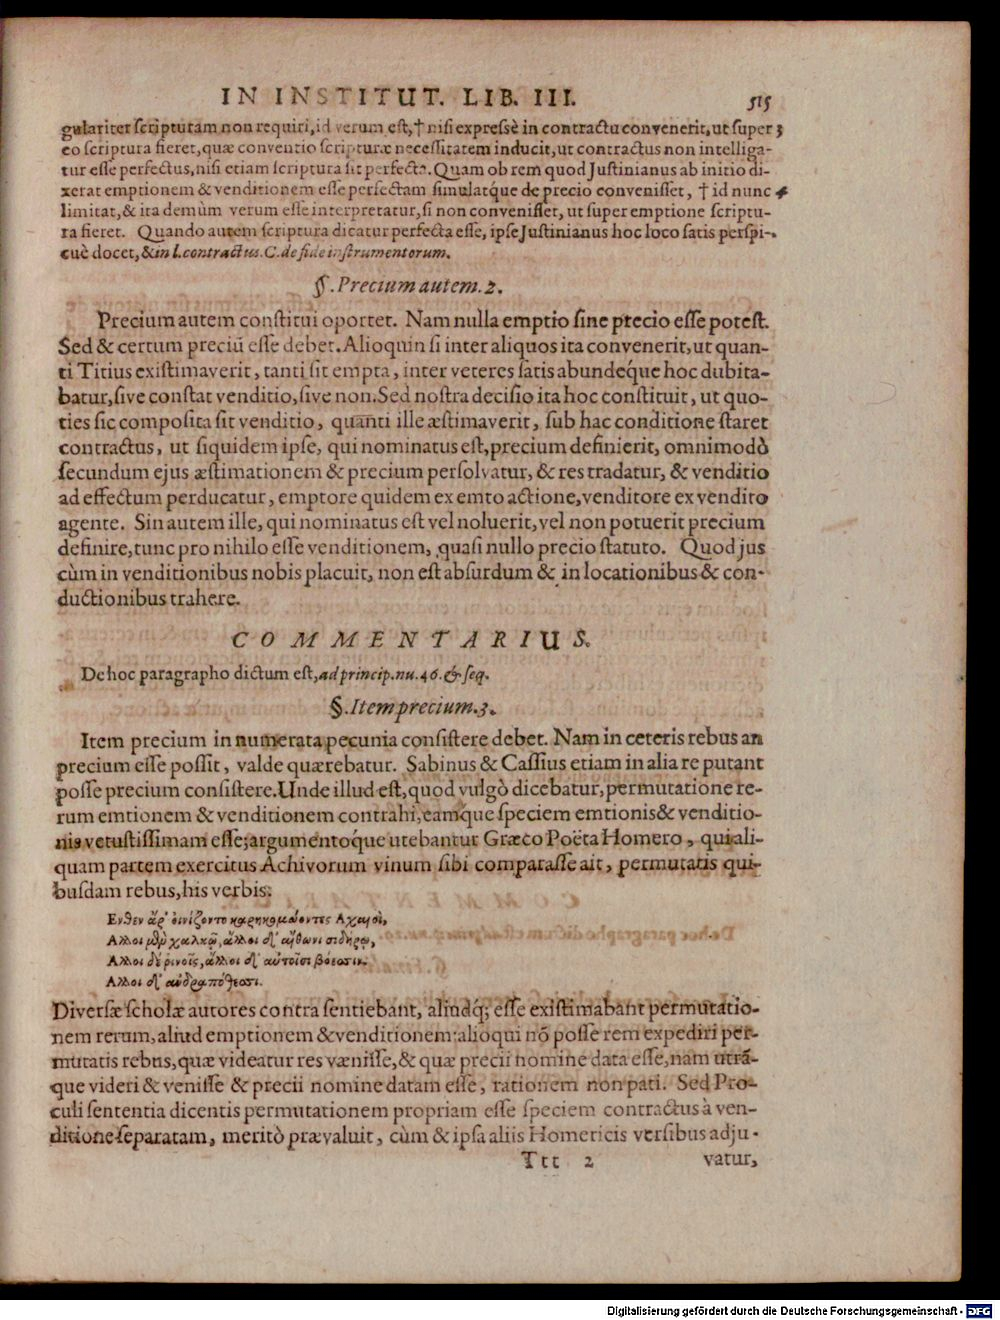 IN INSTITUT. LIB. III. 515
gulariter scripturam non requiri, id verum est, † nisi expressè in contractu convenerit, ut super 3
eo scriptura fieret, quæ conventio scripturæ necessitatem inducit, ut contractus non intelliga-
tur esse perfectus, nisi etiam scriptura sit perfecta. Quam ob rem quod Justinianus ab initio di-
xerat emptionem & venditionem esse perfectam simulatq́ue de precio convenisset, † id nunc 4
limitat, & ita demùm verum esse interpretatur, si non convenisset, ut super emptione scriptu-
ra fieret. Quando autem scriptura dicatur perfecta esse, ipse Justinianus hoc loco satis perspi-
cuè docet, & in l. contractus. C. de fide instrumentorum.
§. Precium autem. 2.
Precium autem constitui oportet. Nam nulla emptio sine precio esse potest.
Sed & certum preciū esse debet. Alioquin si inter aliquos ita convenerit, ut quan-
ti Titius existimaverit, tanti sit empta, inter veteres satis abundeq́ue hoc dubita-
batur, sive constat venditio, sive non. Sed nostra decisio ita hoc constituit, ut quo-
ties sic composita sit venditio, quanti ille æstimaverit, sub hac conditione staret
contractus, ut siquidem ipse, qui nominatus est, precium definierit, omnimodò
secundum ejus æstimationem & precium persolvatur, & res tradatur, & venditio
ad effectum perducatur, emptore quidem ex emto actione, venditore ex vendito
agente. Sin autem ille, qui nominatus est vel noluerit, vel non potuerit precium
definire, tunc pro nihilo esse venditionem, quasi nullo precio statuto. Quod jus
cùm in venditionibus nobis placuit, non est absurdum & in locationibus & con-
ductionibus trahere.
COMMENTARIUS.
De hoc paragrapho dictum est, ad princip. nu. 46. & seq.
§. Item precium. 3.
Item precium in numerata pecunia consistere debet. Nam in ceteris rebus an
precium esse possit, valde quærebatur. Sabinus & Cassius etiam in alia re putant
posse precium consistere. Unde illud est, quod vulgò dicebatur, permutatione re-
rum emtionem & venditionem contrahi, eamq́ue speciem emtionis & venditio-
nis vetustissimam esse; argumentoq́ue utebantur Græco Poëta Homero, qui ali-
quam partem exercitus Achivorum vinum sibi comparasse ait, permutatis qui-
busdam rebus, his verbis:
Ενθεν ἄρ' οἰνίζοντο καρηκομόωντες Αχαιοὶ,
Αλλοι μὲν χαλκῷ, ἄλλοι δ' αἴθωνι σιδήρῳ,
Αλλοι δὲ ῥινοῖς, ἄλλοι δ' αὐτοῖσι βόεσσιν.
Αλλοι δ' ανδραπόδεσσι.
Diversæ scholæ autores contra sentiebant, aliudq́; esse existimabant permutatio-
nem rerum, aliud emptionem & venditionem: alioqui nō posse rem expediri per-
mutatis rebus, quæ videatur res vænisse, & quæ precii nomine data esse, nam utrā-
que videri & venisse & precii nomine datam esse, rationem non pati. Sed Pro-
culi sententia dicentis permutationem propriam esse speciem contractus à ven-
ditione separatam, meritò prævaluit, cùm & ipsa aliis Homericis versibus adju-
Ttt 2 vatur,
Digitalisierung gefördert durch die Deutsche Forschungsgemeinschaft - DFG